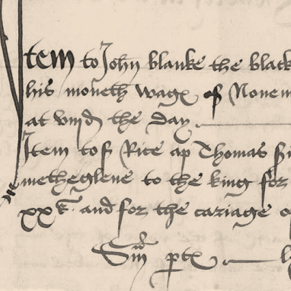 Item to John blanke the black
his moneth wagx of Novem
at viijd the day
Item to Rice ap Thomas
metheglene to the king for
xxs and for the cariage o
Sma ptx